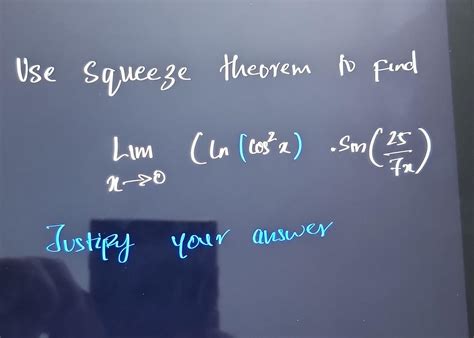 Use squeeze theorem to find
Lim (ln (cos²x) .Sin(25/7x)
x→0
Justify your answer